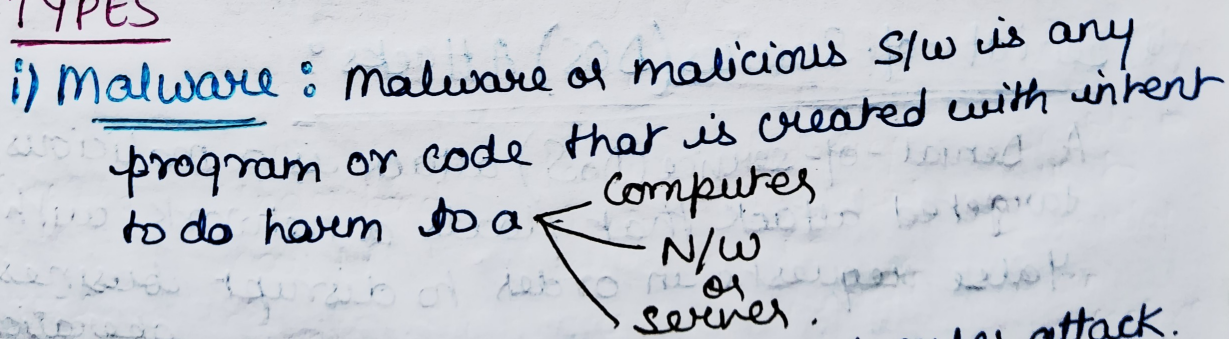 TYPES
i) Malware : Malware or malicious S/W is any
program or code that is created with intent
to do harm to a
computer
N/W
or
server.
attack.